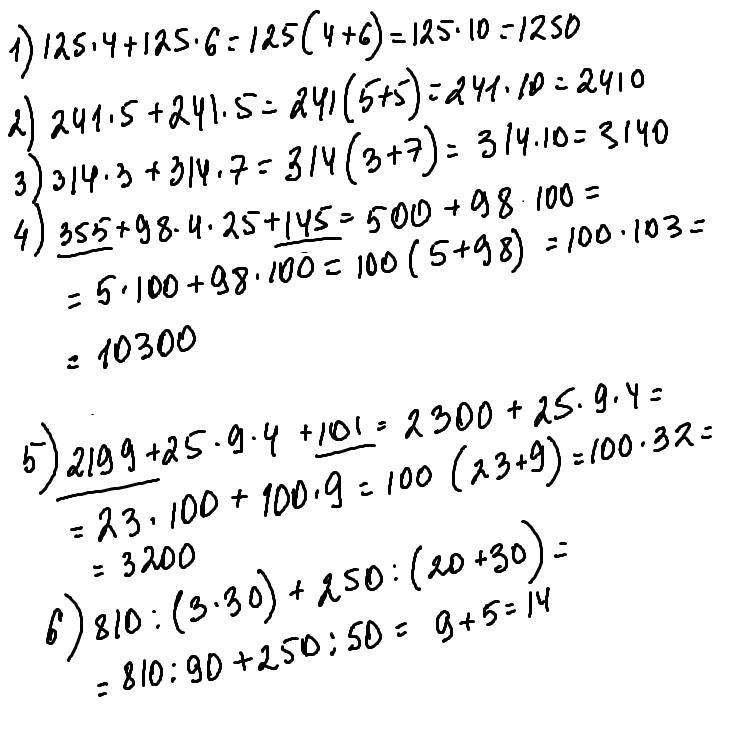 1) 125·4+125·6=125(4+6)=125·10=1250
2) 241·5+241·5=241(5+5)=241·10=2410
3) 314·3+314·7=314(3+7)=314·10=3140
4) 355+98·4·25+145=500+98·100=
=5·100+98·100=100(5+98)=100·103=
=10300
5) 2199+25·9·4+101=2300+25·9·4=
=23·100+100·9=100(23+9)=100·32=
=3200
6) 810:(3·30)+250:(20+30)=
=810:90+250:50=9+5=14